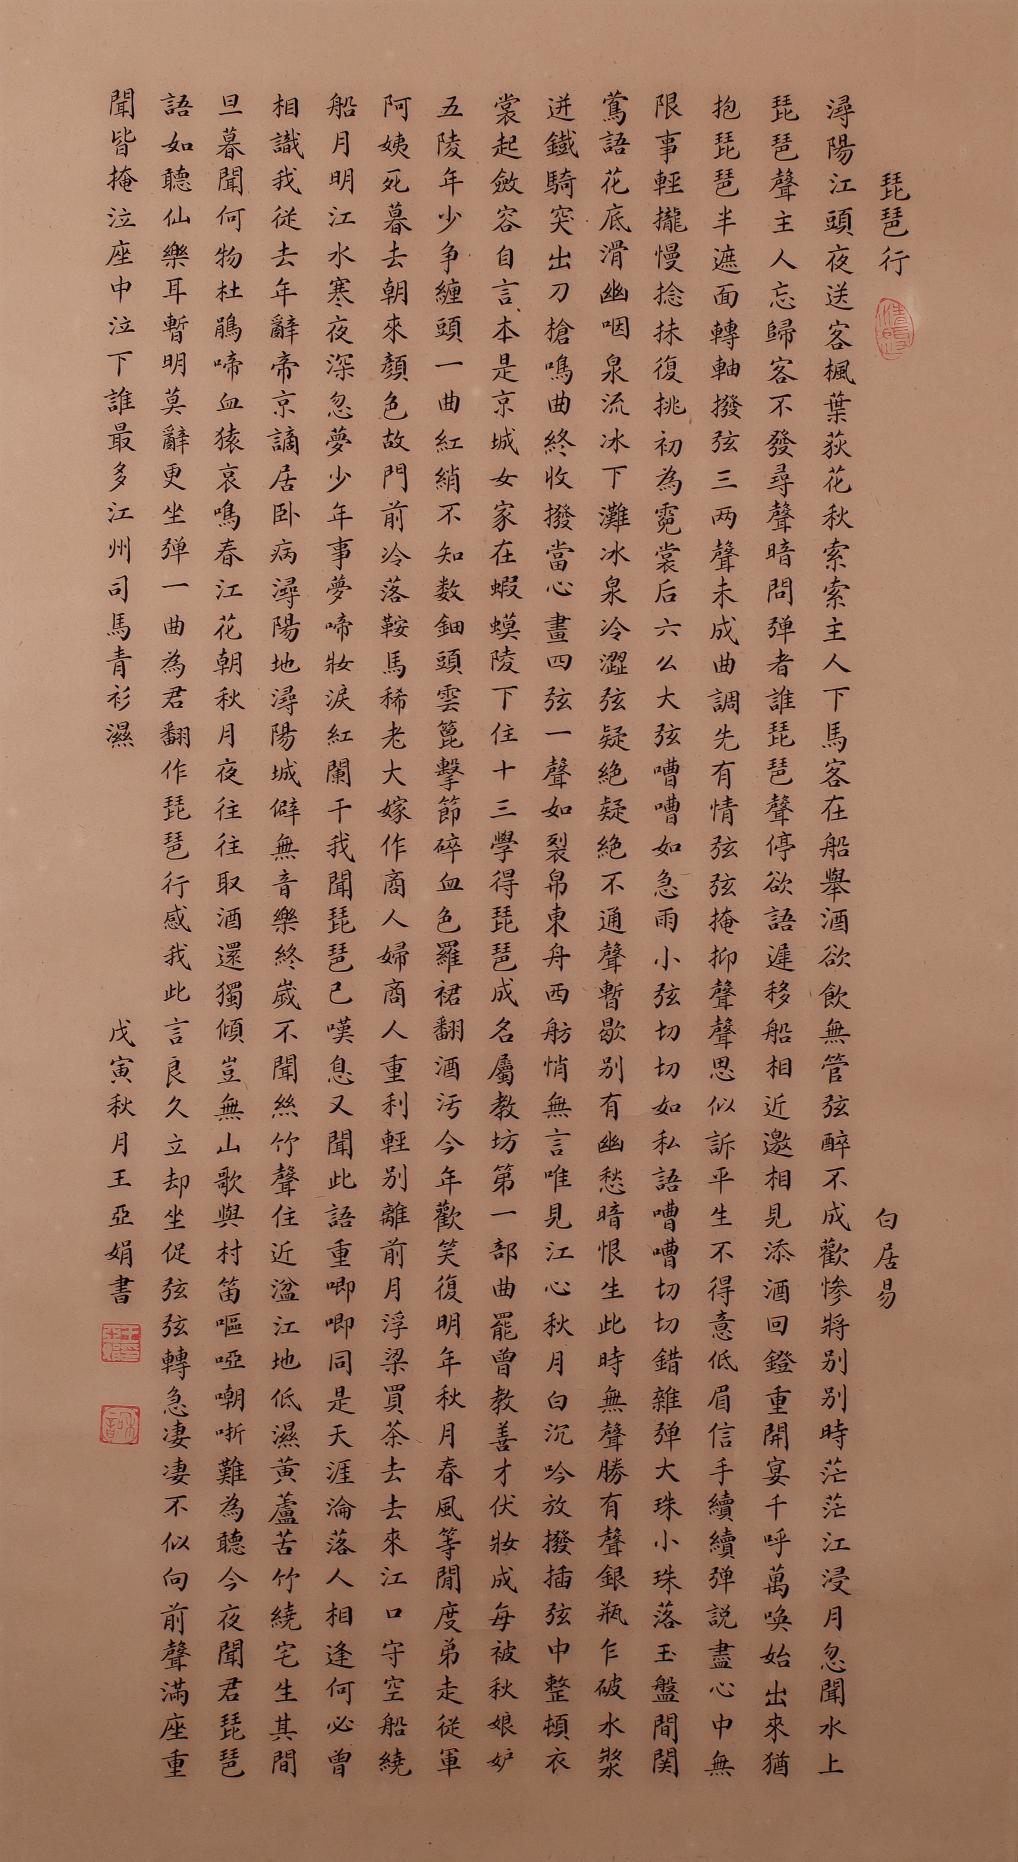 琵琶行 白居易
潯陽江頭夜送客楓葉荻花秋索索主人下馬客在船舉酒欲飲無管弦醉不成歡慘將别别時茫茫江浸月忽聞水上
琵琶聲主人忘歸客不發尋聲暗問弹者誰琵琶聲停欲語遲移船相近邀相見添酒回鐙重開宴千呼萬唤始出來猶
抱琵琶半遮面轉軸撥弦三两聲未成曲調先有情弦弦掩抑聲聲思似訴平生不得意低眉信手續續弹説盡心中無
限事輕攏慢捻抹復挑初為霓裳后六幺大弦嘈嘈如急雨小弦切切如私語嘈嘈切切錯雜弹大珠小珠落玉盤間関
鶯語花底滑幽咽泉流冰下灘冰泉冷澀弦疑絶疑絶不通聲暫歇别有幽愁暗恨生此時無聲勝有聲銀瓶乍破水漿
迸鐵騎突出刀槍鳴曲終收撥當心畫四弦一聲如裂帛東舟西舫悄無言唯見江心秋月白沉吟放撥插弦中整頓衣
裳起斂容自言本是京城女家在蝦蟆陵下住十三學得琵琶成名屬教坊第一部曲罷曾教善才伏妝成每被秋娘妒
五陵年少争纏頭一曲紅綃不知数鈿頭雲篦擊節碎血色羅裙翻酒污今年歡笑復明年秋月春風等閒度弟走從軍
阿姨死暮去朝來顏色故門前冷落鞍馬稀老大嫁作商人婦商人重利輕别離前月浮梁買茶去去來江口守空船繞
船月明江水寒夜深忽夢少年事夢啼妝淚紅闌干我聞琵琶已嘆息又聞此語重唧唧同是天涯淪落人相逢何必曾
相識我從去年辭帝京謫居卧病潯陽地潯陽城僻無音樂終歲不聞絲竹聲住近湓江地低濕黄蘆苦竹繞宅生其間
旦暮聞何物杜鵑啼血猿哀鳴春江花朝秋月夜往往取酒還獨傾豈無山歌與村笛嘔啞嘲哳難為聽今夜聞君琵琶
語如聽仙樂耳暫明莫辭更坐弹一曲為君翻作琵琶行感我此言良久立却坐促弦弦轉急凄凄不似向前聲滿座重
聞皆掩泣座中泣下誰最多江州司馬青衫濕 戊寅秋月王亞娟書